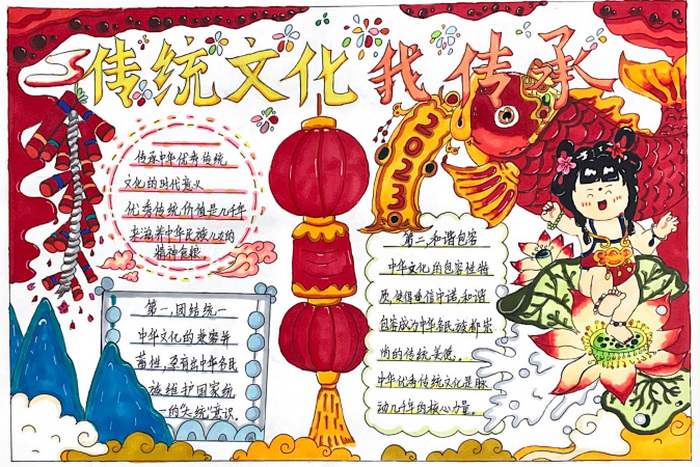 传统文化我传承
2023
传承中华优秀传统
文化的时代意义
优秀传统价值是几千年
来滋养中华民族儿女的
精神食粮
第一,团结统一
中华文化的兼容并
蓄性,孕育出中华各民
族维护国家统
一的"大统"意识
第二,和谐包容
中华文化的包容性特
质,使得重信守诺,和谐
包容成为中华各民族都崇
尚的传统美德。
中华优秀传统文化是脉
动几千年的核心力量。